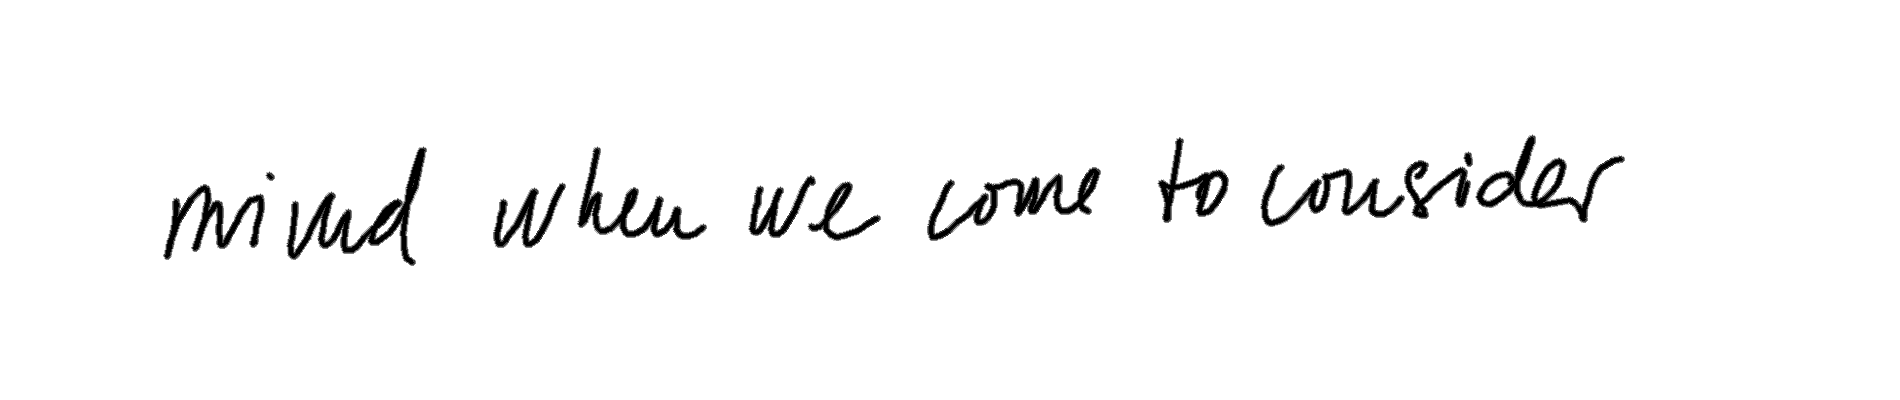 mind when we come to consider